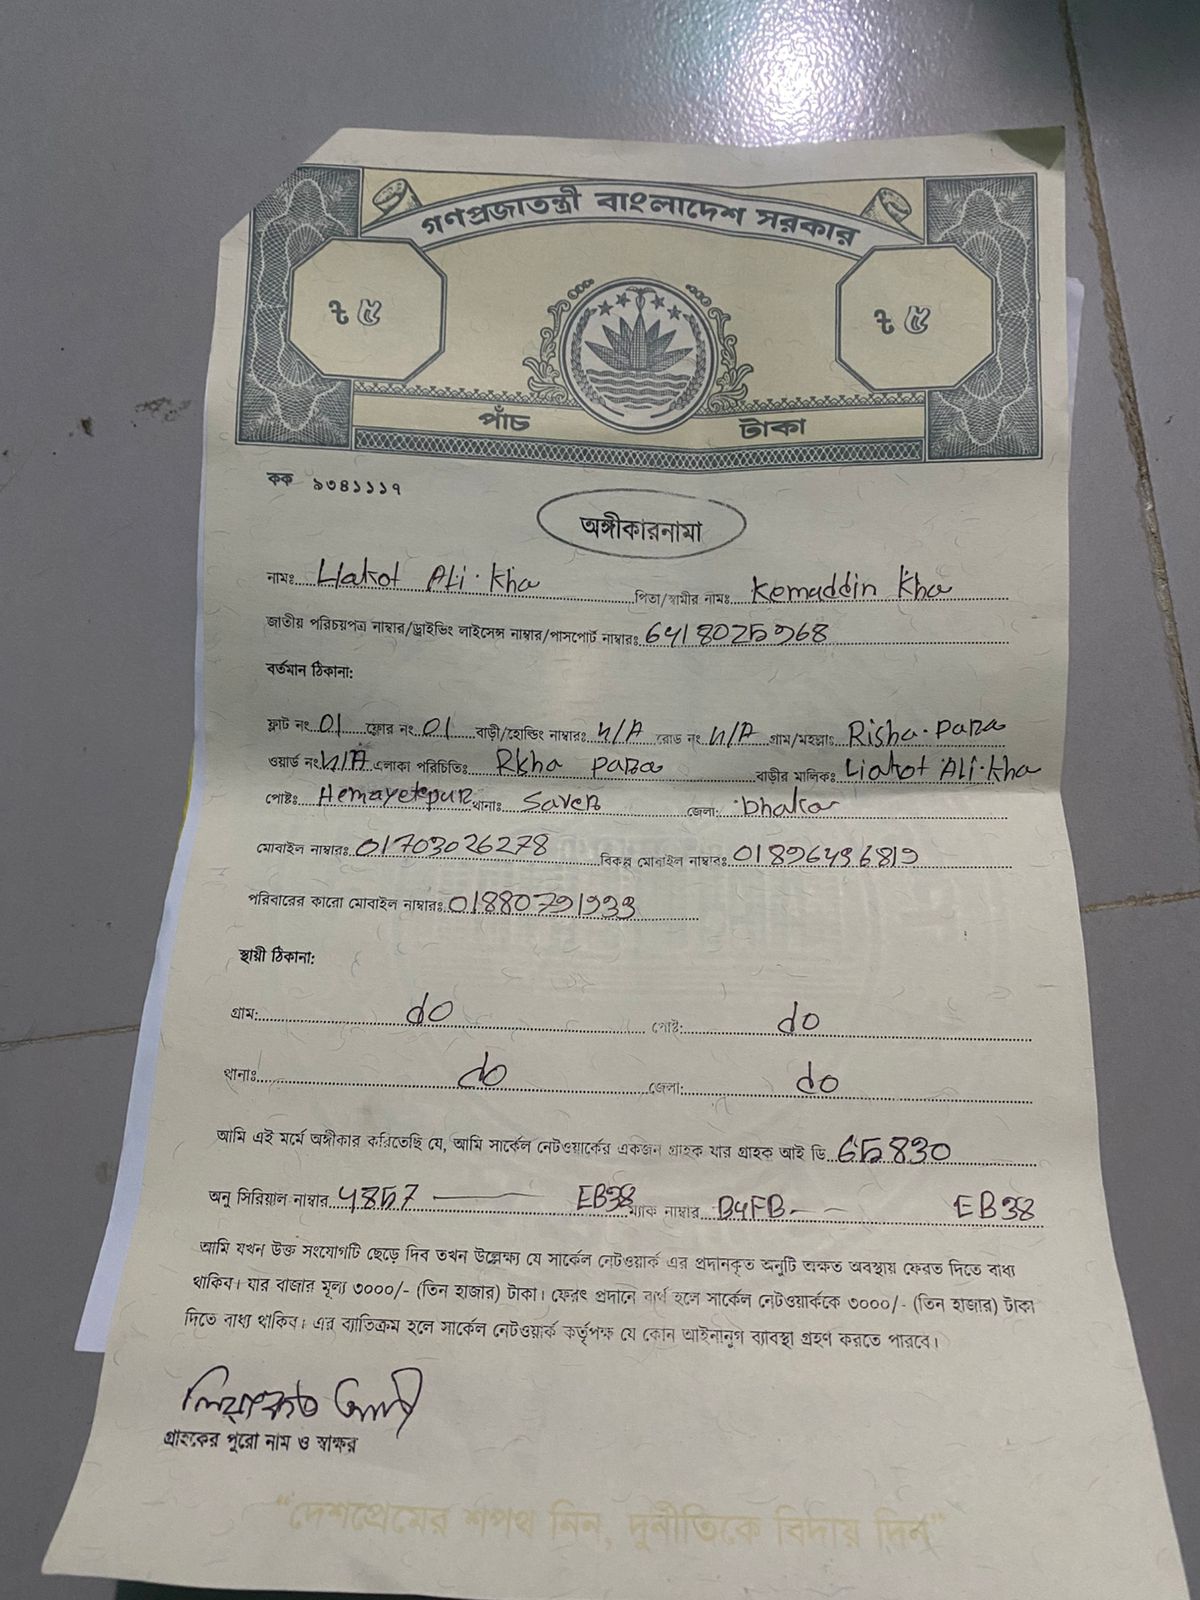 গণপ্রজাতন্ত্রী বাংলাদেশ সরকার
৳ ৫ ৳ ৫
পাঁচ টাকা
কক ৯৩৪১১১৭
অঙ্গীকারনামা
নামঃ Liakot Ali. Kha পিতা/স্বামীর নামঃ Kemaddin Kha
জাতীয় পরিচয়পত্র নাম্বার/ড্রাইভিং লাইসেন্স নাম্বার/পাসপোর্ট নাম্বারঃ
বর্তমান ঠিকানা:
ফ্লাট নং 01 ফ্লোর নং 01 বাড়ী/হোল্ডিং নাম্বারঃ N/A রোড নং N/A গ্রাম/মহল্লাঃ Risha. para
ওয়ার্ড নং N/A এলাকা পরিচিতিঃ para বাড়ীর মালিকঃ Liakot Ali. kha
পোষ্টঃ Hemayetpur থানাঃ Saver জেলা: Dhaka
মোবাইল নাম্বারঃ 01703026278 বিকল্প মোবাইল নাম্বারঃ 01896496819
পরিবারের কারো মোবাইল নাম্বারঃ 01880791933
স্থায়ী ঠিকানা:
গ্রাম: do পোষ্ট: do
থানাঃ do জেলা: do
আমি এই মর্মে অঙ্গীকার করিতেছি যে, আমি সার্কেল নেটওয়ার্কের একজন গ্রাহক যার গ্রাহক আই ডি 65830
অনু সিরিয়াল নাম্বার 4857 EB38 ম্যাক নাম্বার B4FB-- EB38
আমি যখন উক্ত সংযোগটি ছেড়ে দিব তখন উল্লেক্ষ্য যে সার্কেল নেটওয়ার্ক এর প্রদানকৃত অনুটি অক্ষত অবস্থায় ফেরত দিতে বাধ্য
থাকিব। যার বাজার মূল্য ৩০০০/- (তিন হাজার) টাকা। ফেরৎ প্রদানে ব্যর্থ হলে সার্কেল নেটওয়ার্ককে ৩০০০/- (তিন হাজার) টাকা
দিতে বাধ্য থাকিব। এর ব্যাতিক্রম হলে সার্কেল নেটওয়ার্ক কর্তৃপক্ষ যে কোন আইনানুগ ব্যাবস্থা গ্রহণ করতে পারবে।
লিয়াকত আলী
গ্রাহকের পুরো নাম ও স্বাক্ষর
"দেশপ্রেমের শপথ নিন, দুর্নীতিকে বিদায় দিন"